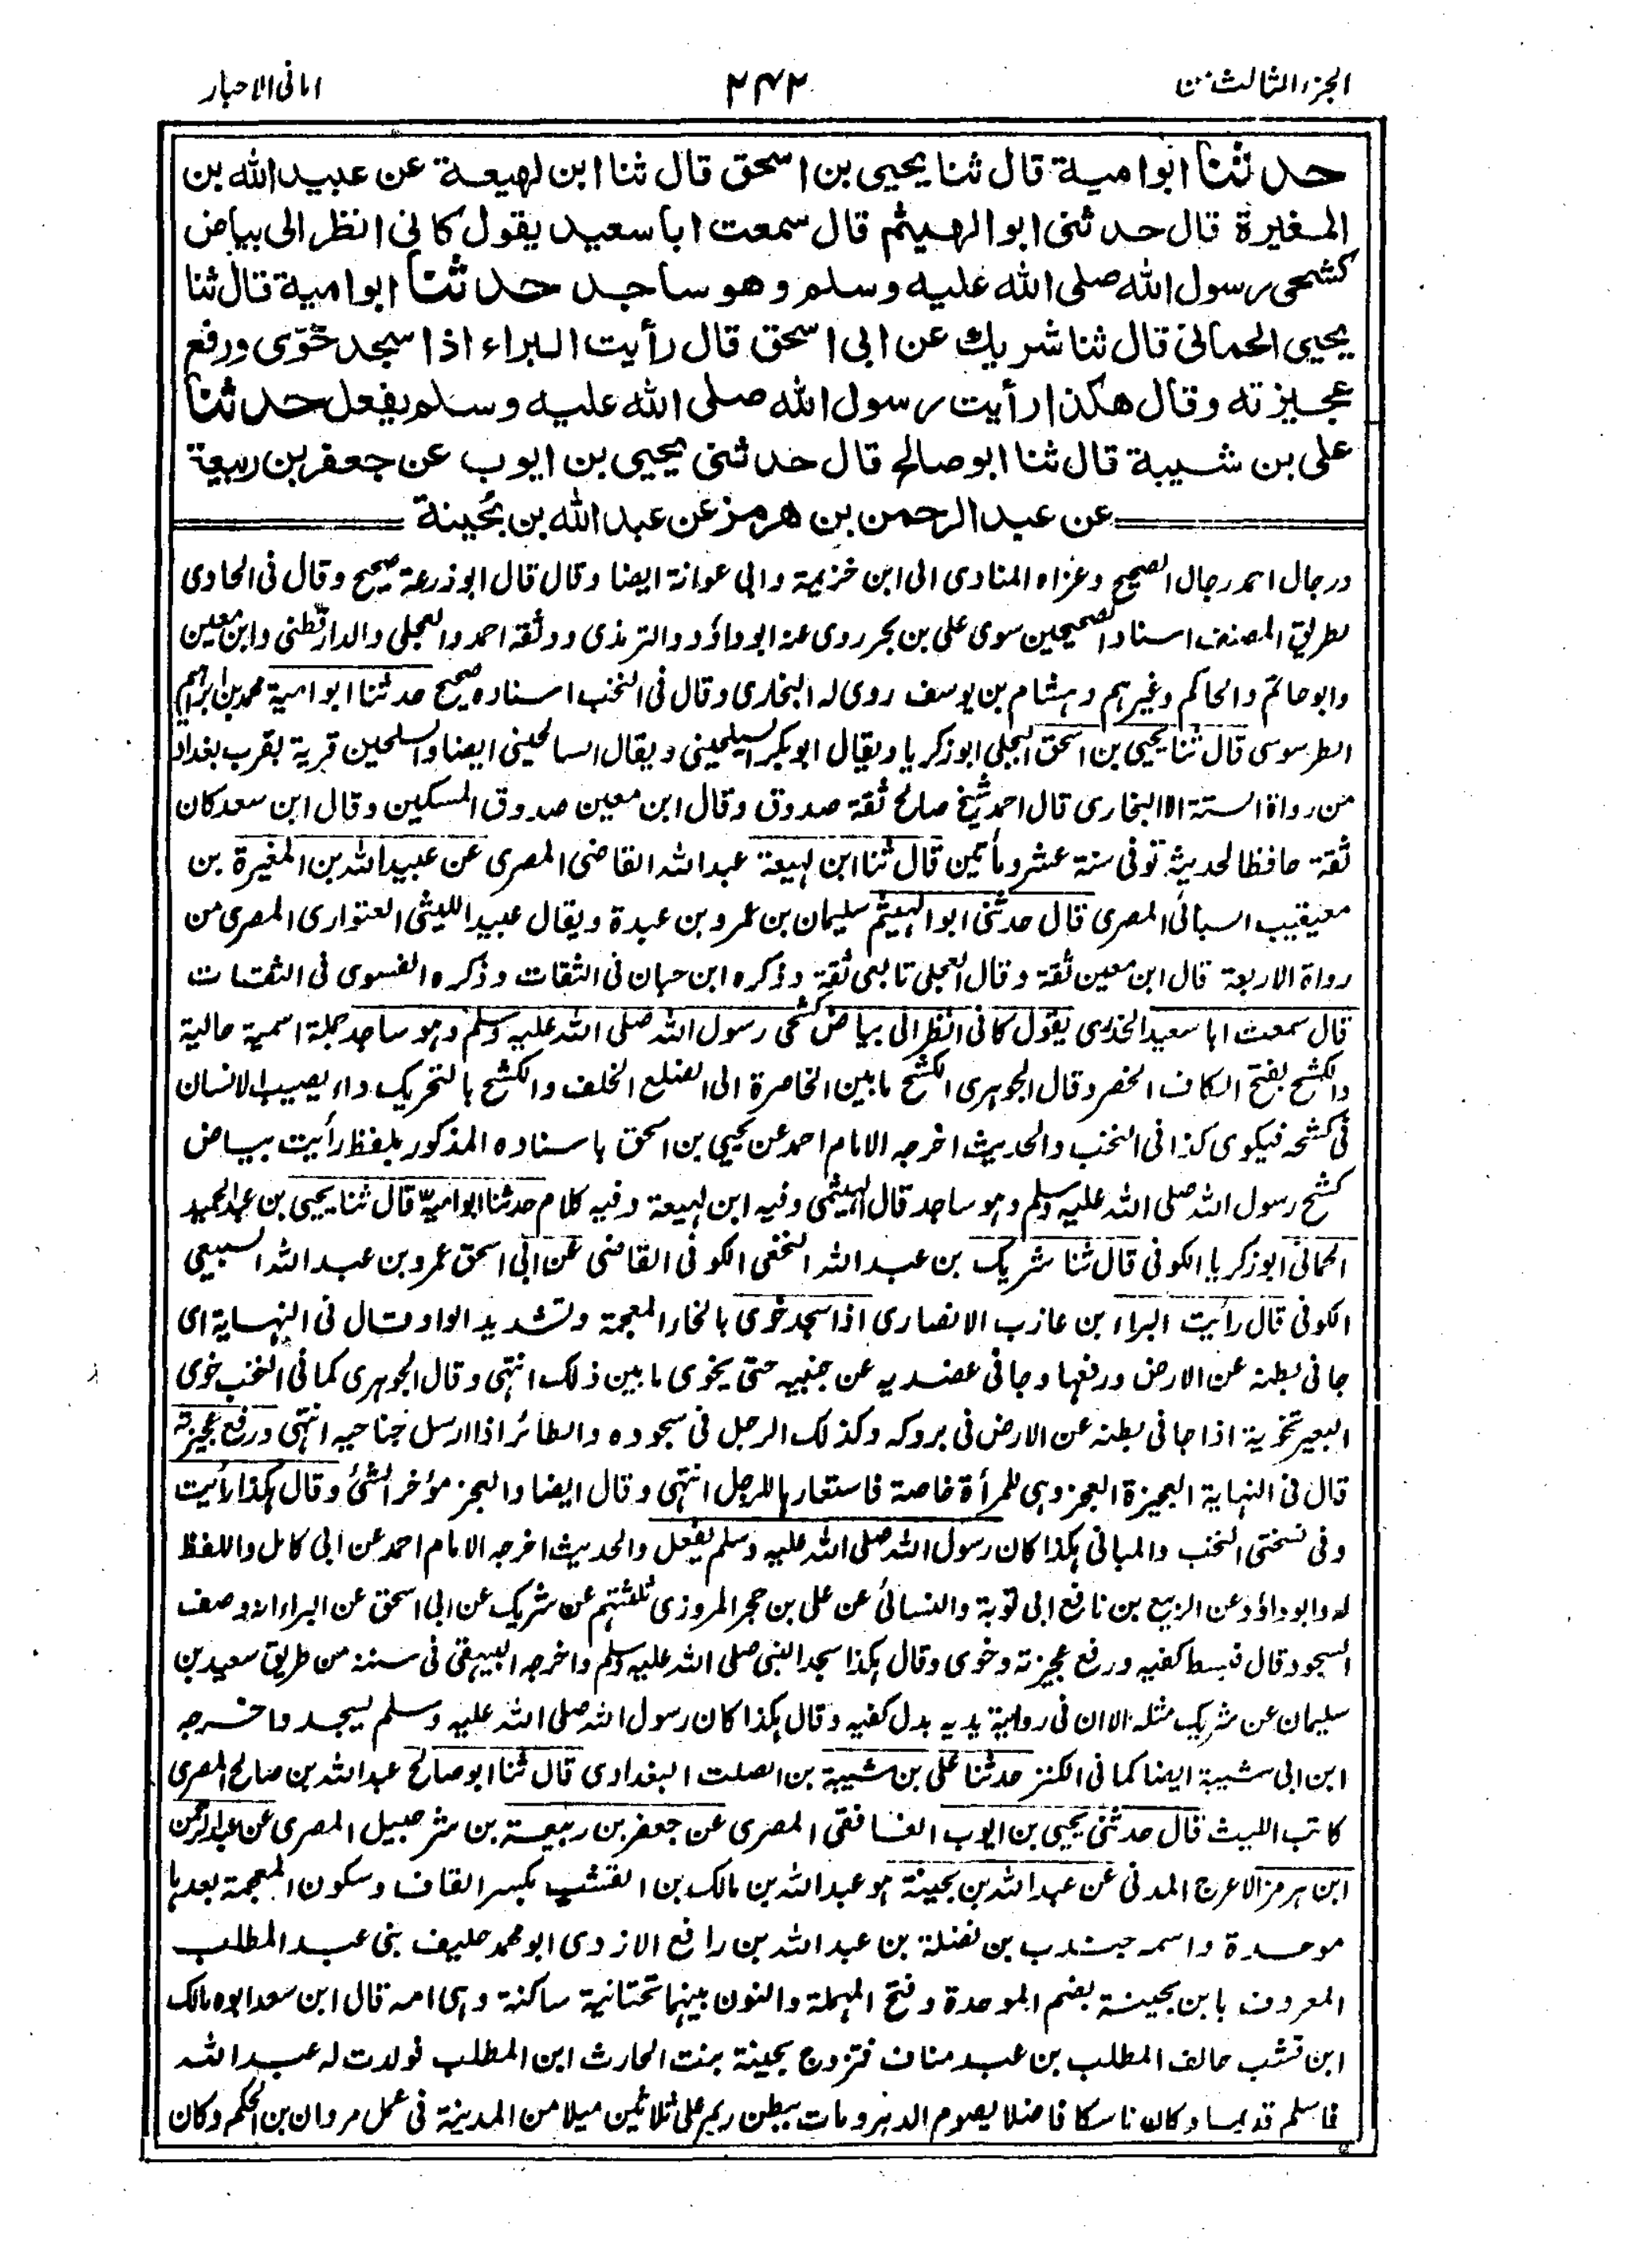 الجزء الثالث من
۲۴۲
امانی الاحبار
حدثنا ابوامیة قال ثنا یحیی بن اسحق قال ثنا ابن لهیعة عن عبید الله بن
المغیرة قال حدثنی ابوالهیثم قال سمعت اباسعید یقول کانی انظر الی بیاض
کشحی رسول الله صلی الله علیه وسلم وهو ساجد حدثنا ابوامیة قال ثنا
یحیی الحمانی قال ثنا شریك عن ابی اسحق قال رأیت البراء اذا سجد خوّی ورفع
عجیزته وقال هکذا رأیت رسول الله صلی الله علیه وسلم یفعل حدثنا
علی بن شیبة قال ثنا ابوصالح قال حدثنی یحیی بن ایوب عن جعفر بن ربیعة
عن عبد الرحمن بن هرمز عن عبد الله بن بُحینة
ورجال احمد رجال الصحیح وعزاه المنادی الی ابن خزیمة وابی عوانة ایضا وقال قال ابوزرعة صحیح وقال فی الحاوی
لطریق المصنف اسناد الصحیحین سوی علی بن بحر روی عنه ابوداؤد والترمذی ووثقه احمد والعجلی والدارقطنی وابن معین
وابوحاتم والحاکم وغیرهم وهشام بن یوسف روی له البخاری وقال فی النخب اسناده صحیح حدثنا ابوامیة محمد بن ابراهیم
الطرسوسی قال ثنا یحیی بن اسحق البجلی ابوزکریا ویقال ابوبکر السیلحینی ویقال السالحینی ایضا والسلحین قریة بقرب بغداد
من رواة الستة الا البخاری قال احمد شیخ صالح ثقة صدوق وقال ابن معین صدوق المسکین وقال ابن سعد کان
ثقة حافظا لحدیثه توفی سنة عشر ومأتین قال ثنا ابن لهیعة عبد الله القاضی المصری عن عبید الله بن المغیرة بن
معیقیب السبائی المصری قال حدثنی ابوالهیثم سلیمان بن عمرو بن عبدة ویقال عبید اللیثی العتواری المصری من
رواة الاربعة قال ابن معین ثقة وقال العجلی تابعی ثقة وذکره ابن حبان فی الثقات وذکره الفسوی فی الثقات
قال سمعت ابا سعید الخدری یقول کانی انظر الی بیاض کشحی رسول الله صلی الله علیه وسلم وهو ساجد جملة اسمیة حالیة
والکشح بفتح الکاف الخصر وقال الجوهری الکشح مابین الخاصرة الی الضلع الخلف والکشح بالتحریک داء یصیب الانسان
فی کشحه فیکوی کذا فی النخب والحدیث اخرجه الامام احمد عن یحیی بن اسحق باسناده المذکور بلفظ رأیت بیاض
کشح رسول الله صلی الله علیه وسلم وهو ساجد قال الهیثمی وفیه ابن لهیعة وفیه کلام حدثنا ابوامیة قال ثنا یحیی بن عبد الحمید
الحمانی ابوزکریا الکوفی قال ثنا شریک بن عبد الله النخعی الکوفی القاضی عن ابی اسحق عمرو بن عبد الله السبیعی
الکوفی قال رأیت البراء بن عازب الانصاری اذا سجد خوی بالخاء المعجمة وتشدید الواو وقال فی النهایة ای
جافی بطنه عن الارض ورفعها وجافی عضدیه عن جنبیه حتی یخوی مابین ذلک انتهی وقال الجوهری کما فی النخب خوی
البعیر تخویة اذا جافی بطنه عن الارض فی بروکه وکذلک الرجل فی سجوده والطائر اذا ارسل جناحیه انتهی ورفع عجیزته
قال فی النهایة العجیزة العجز وهی للمرأة خاصة فاستعارها للرجل انتهی وقال ایضا والعجز مؤخر الشئ وقال هکذا رأیت
وفی نسختی النخب والمبانی هکذا کان رسول الله صلی الله علیه وسلم یفعل والحدیث اخرجه الامام احمد عن ابی کامل واللفظ
له وابوداؤد عن الربیع بن نافع ابی توبة والنسائی عن علی بن حجر المروزی ثلثتهم عن شریک عن ابی اسحق عن البراء انه وصف
السجود قال فبسط کفیه ورفع عجیزته وخوی وقال هکذا سجد النبی صلی الله علیه وسلم واخرجه البیهقی فی سننه من طریق سعید بن
سلیمان عن شریک مثله الا ان فی روایة یدیه بدل کفیه وقال هکذا کان رسول الله صلی الله علیه وسلم یسجد واخرجه
ابن ابی شیبة ایضا کما فی الکنز حدثنا علی بن شیبة بن الصلت البغدادی قال ثنا ابوصالح عبد الله بن صالح المصری
کاتب اللیث قال حدثنی یحیی بن ایوب الغافقی المصری عن جعفر بن ربیعة بن شرحبیل المصری عن عبد الرحمن
ابن هرمز الاعرج المدنی عن عبد الله بن بحینة هو عبد الله بن مالک بن القشب بکسر القاف وسکون المعجمة بعدها
موحدة واسمه جندب بن نضلة بن عبد الله بن رافع الازدی ابومحمد حلیف بنی عبد المطلب
المعروف بابن بحینة بضم الموحدة وفتح المهملة والنون بینهما تحتانیة ساکنة وهی امه قال ابن سعد ابوه مالک
ابن قشب حالف المطلب بن عبد مناف فتزوج بحینة بنت الحارث ابن المطلب فولدت له عبد الله
فاسلم قدیما وکان ناسکا فاضلا یصوم الدهر ومات ببطن ریم علی ثلاثین میلا من المدینة فی عمل مروان بن الحکم وکان